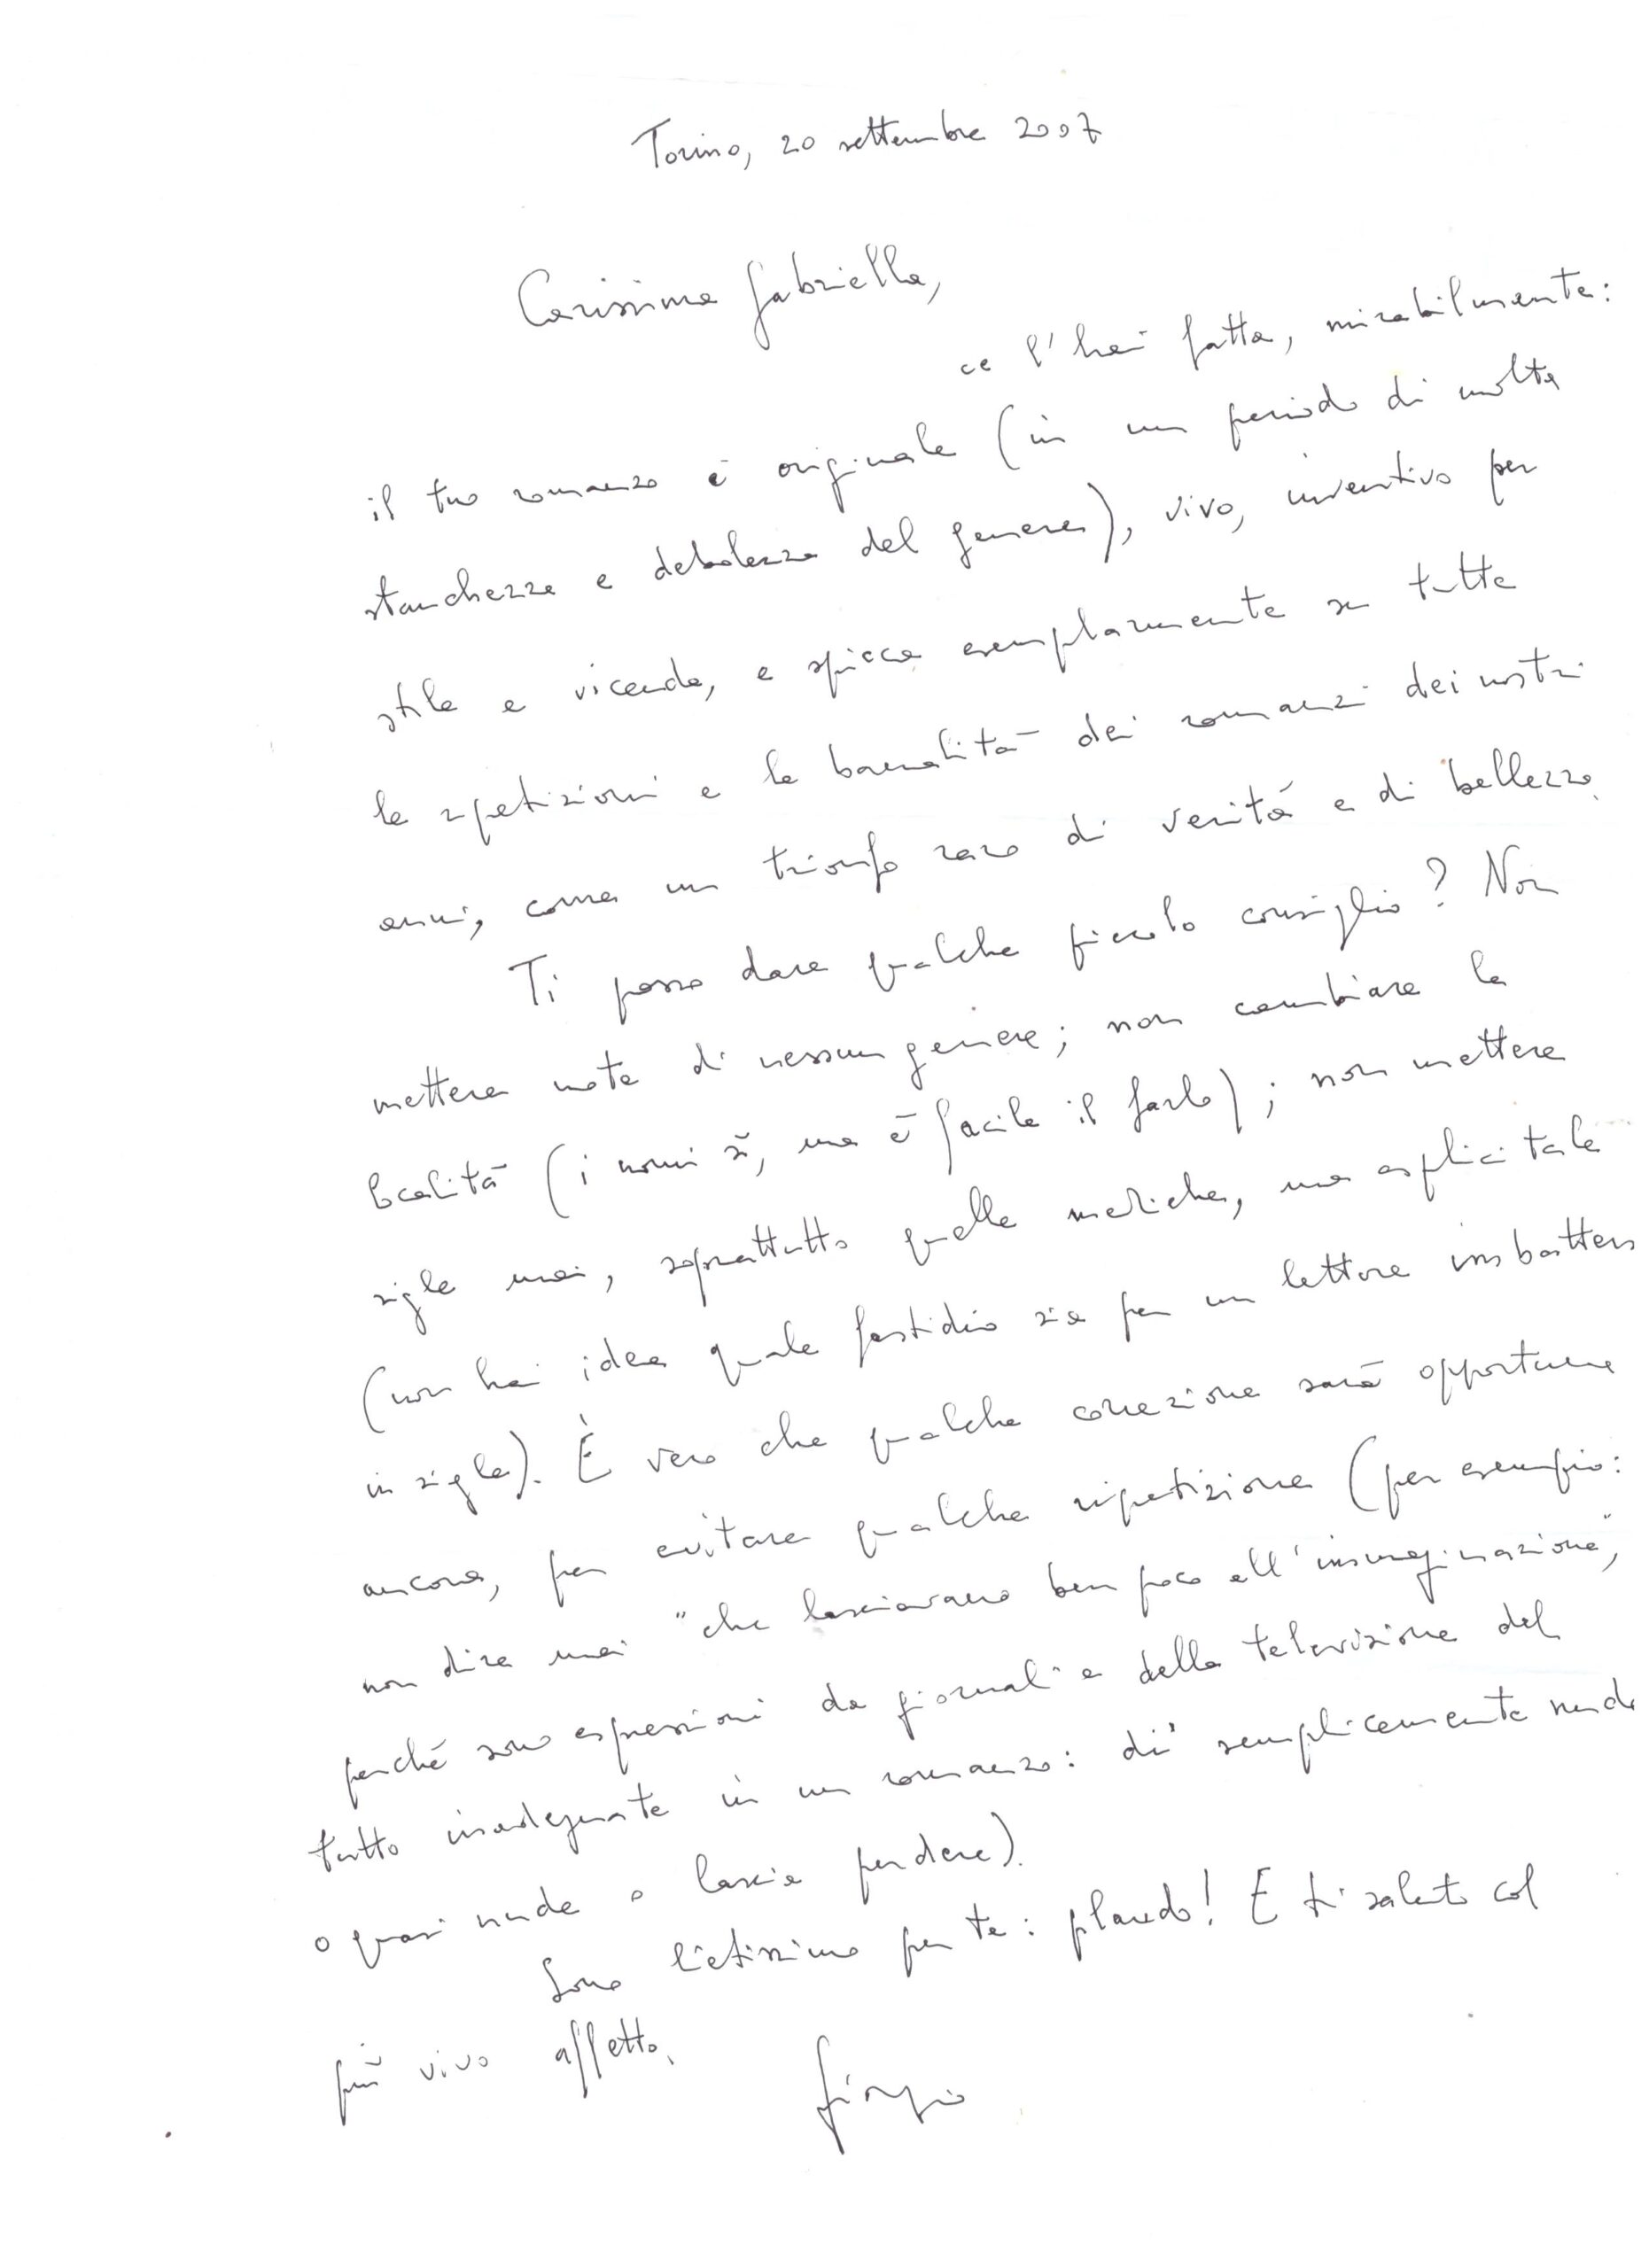 Torino, 20 settembre 2007
Carissima Gabriella,
ce l'hai fatta, mirabilmente:
il tuo romanzo è originale (in un periodo di molta
stanchezza e debolezza del genere), vivo, inventivo per
stile e vicenda, e spicca esemplarmente su tutte
le ripetizioni e le banalità dei romanzi dei nostri
anni, come un trionfo raro di verità e di bellezza.
Ti posso dare qualche piccolo consiglio? Non
mettere note di nessun genere; non cambiare le
località (i nomi sì, ma è facile il farlo); non mettere
sigle mai, soprattutto quelle mediche, ma esplicitale
(non hai idea quale fastidio sia per un lettore imbattersi
in sigle). È vero che qualche correzione sarà opportuna
ancora, per evitare qualche ripetizione (per esempio:
non dire mai "che lasciavano ben poco all'immaginazione",
perché sono espressioni da giornali e della televisione del
tutto inadeguate in un romanzo: di' semplicemente nude
o quasi nude o lascia perdere).
Sono lietissimo per te: plaudo! E ti saluto col
più vivo affetto.
Giorgio